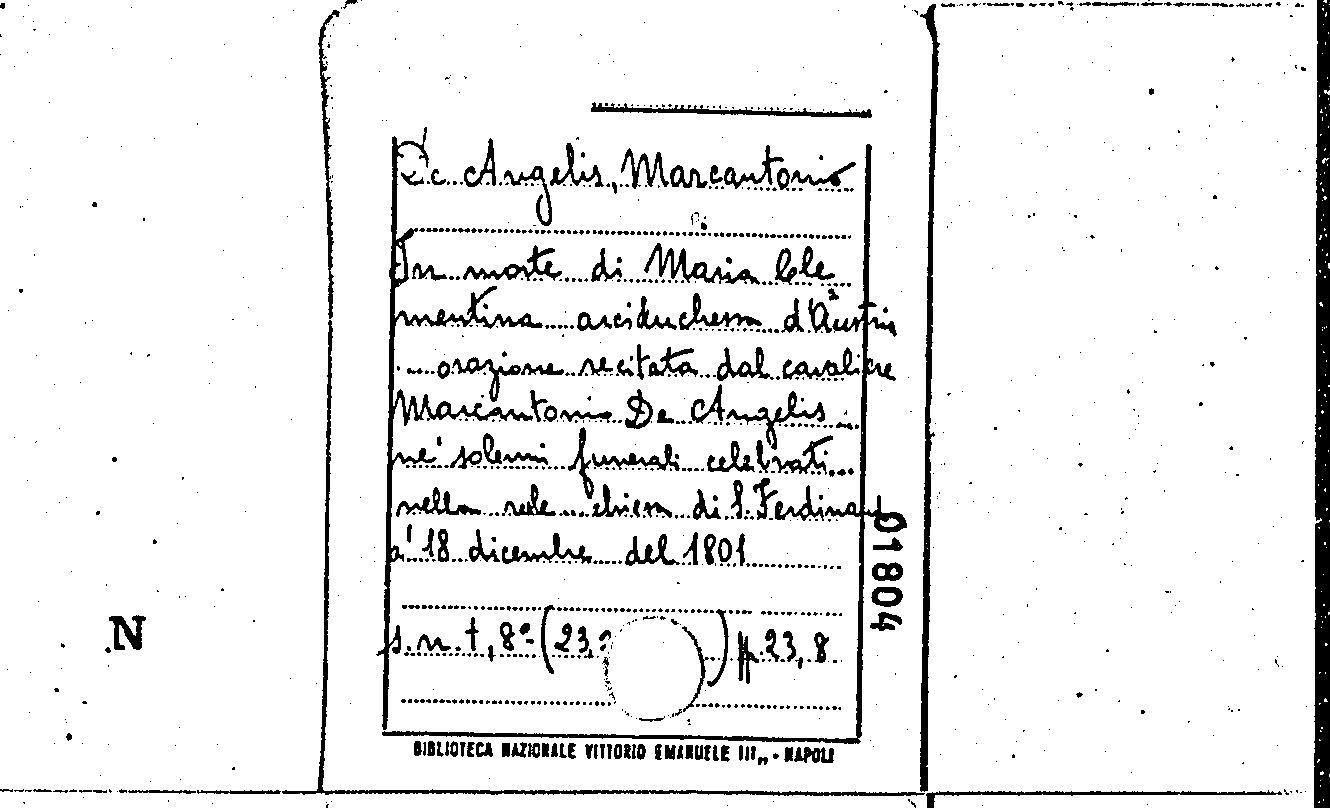 De Angelis, Marcantonio
In morte di Maria Cle
mentina arciduchessa d'Austria
... orazione recitata dal cavaliere
Marcantonio De Angelis ...
ne' solenni funerali celebrati...
nella reale chiesa di S. Ferdinando
a' 18 dicembre del 1801
s.n.t, 8º (23, ) pp. 23, 8
BIBLIOTECA NAZIONALE VITTORIO EMANUELE III„ - NAPOLI
01804
N